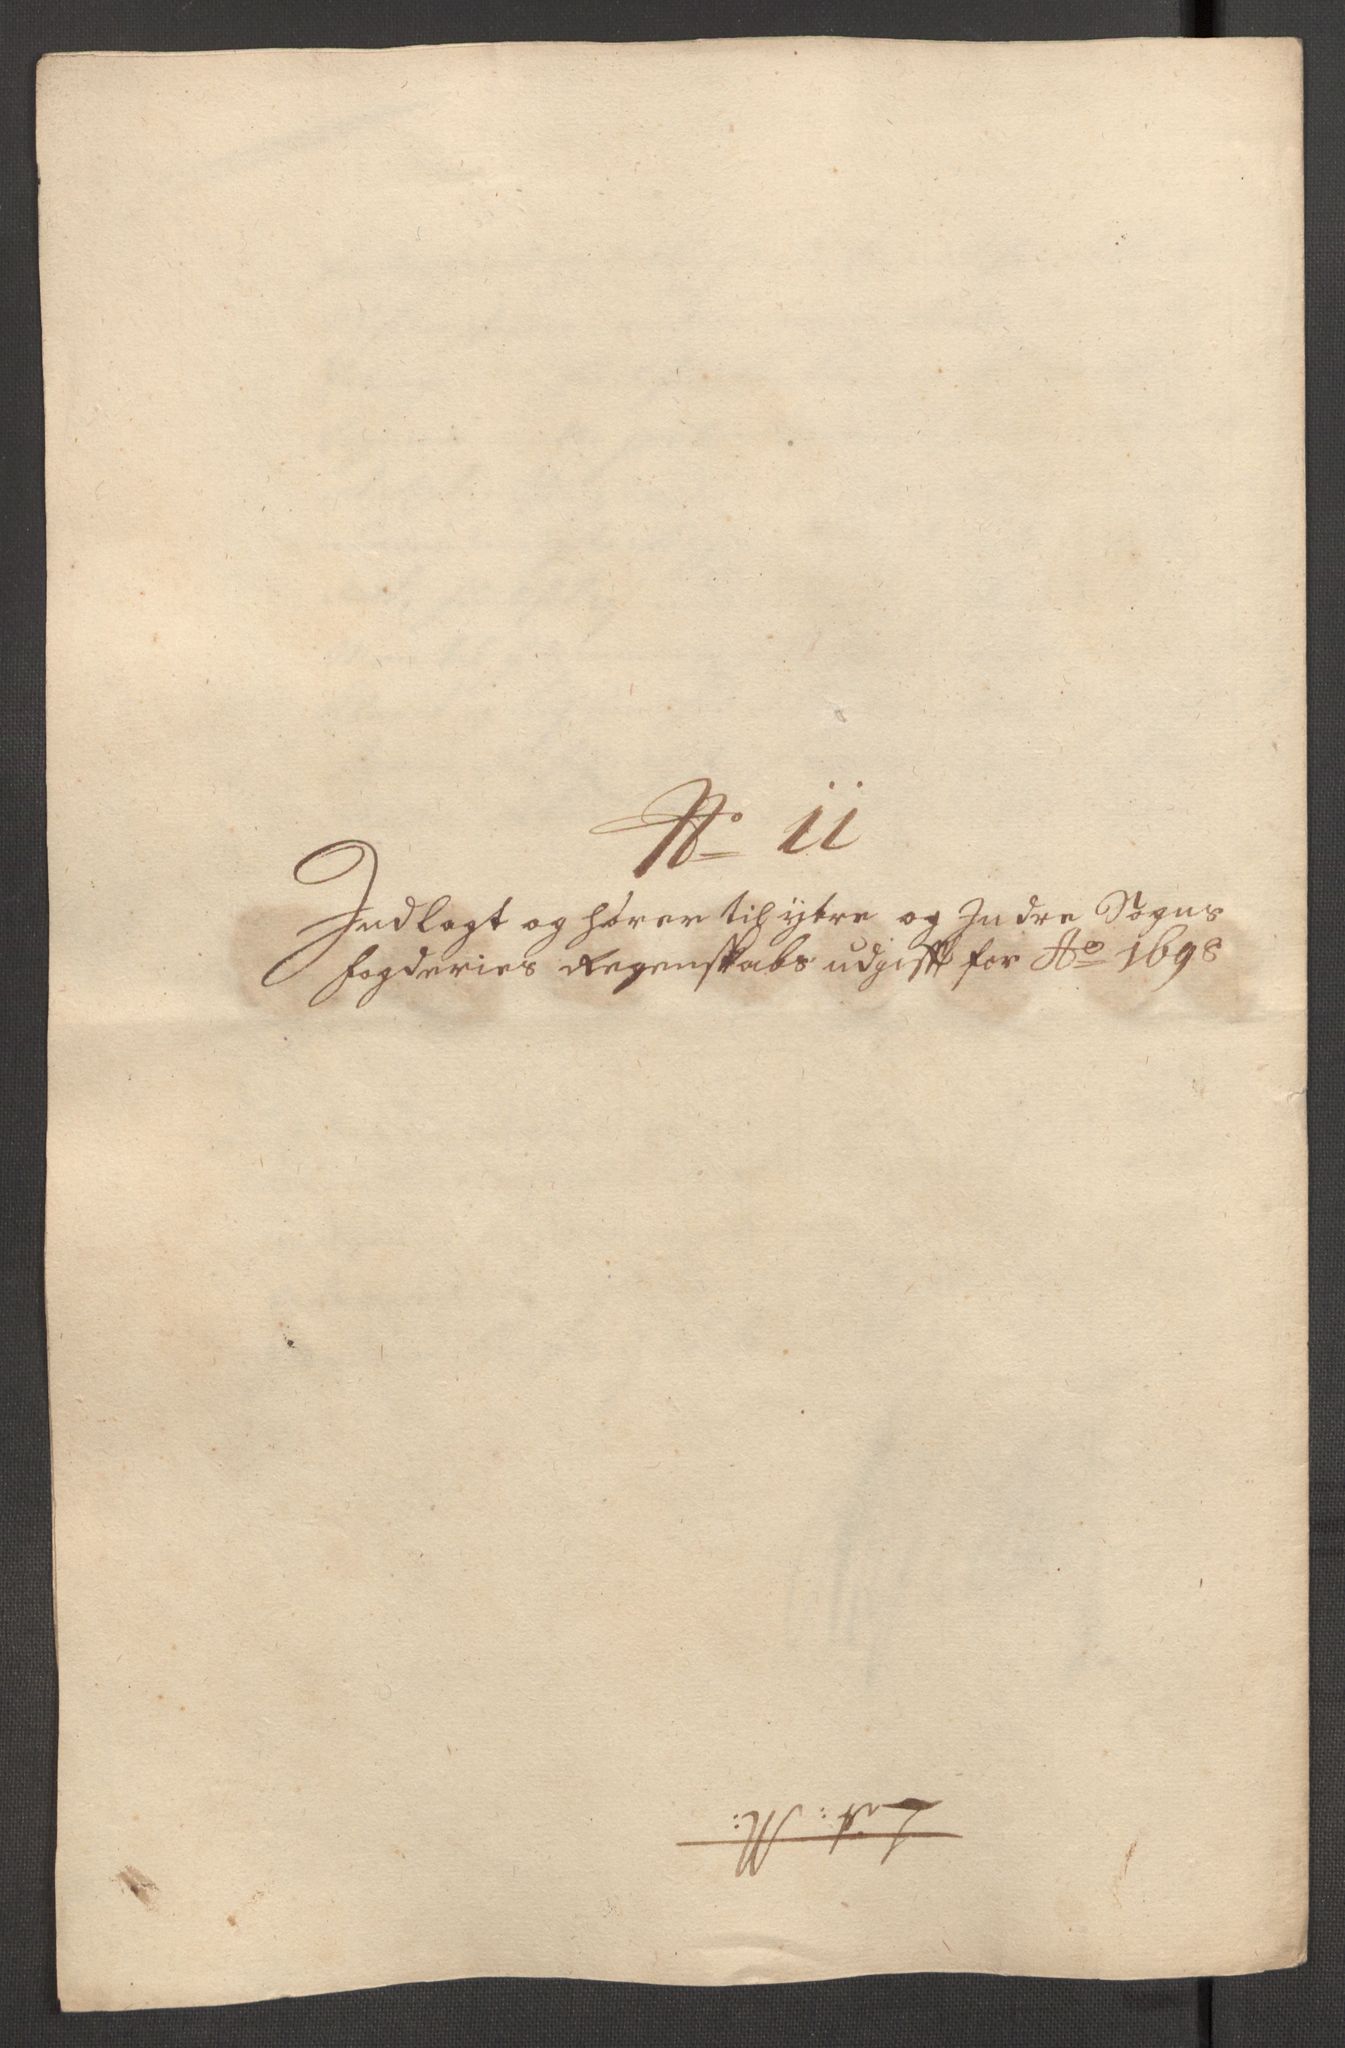 No. 11
Indlagt og hører til ytre og Indre Sogns
fogderies Regenskabs udgifft for Ao 1698
Lit: M: